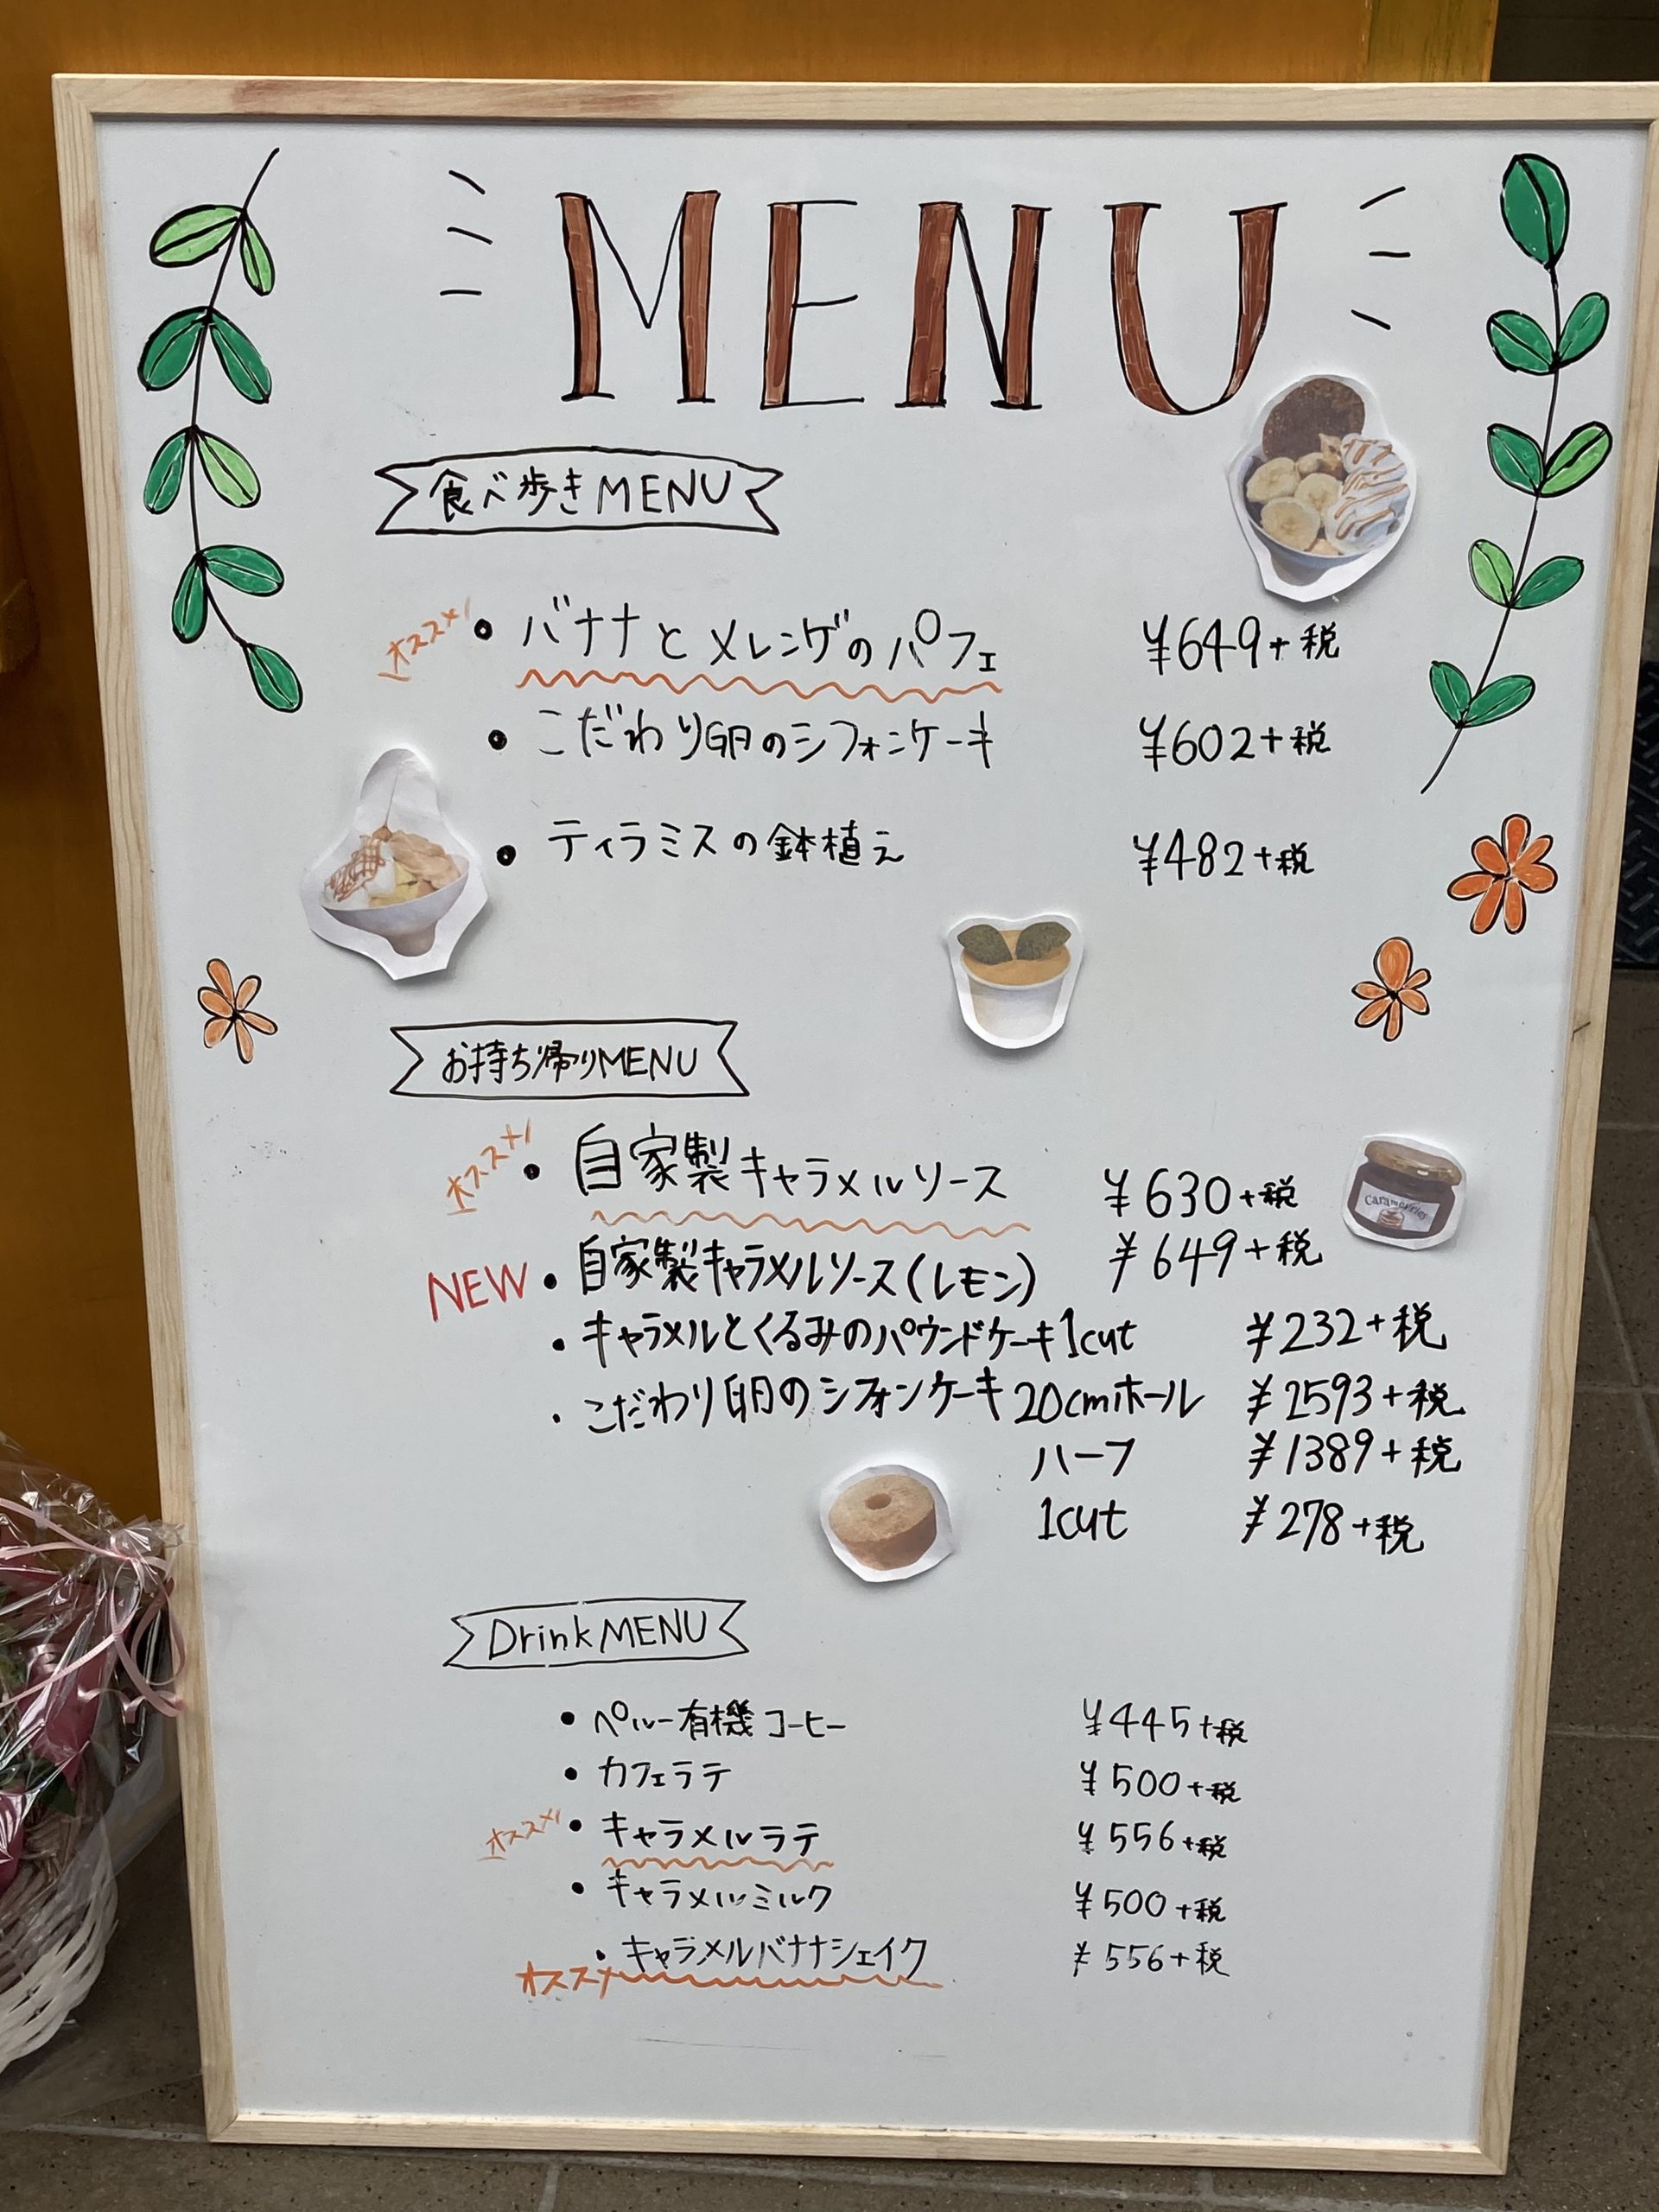 MENU
食べ歩きMENU
オススメ! ・バナナとメレンゲのパフェ ¥649+税
・こだわり卵のシフォンケーキ ¥602+税
・ティラミスの鉢植え ¥482+税
お持ち帰りMENU
オススメ! ・自家製キャラメルソース ¥630+税
NEW ・自家製キャラメルソース(レモン) ¥649+税
・キャラメルとくるみのパウンドケーキ1cut ¥232+税
・こだわり卵のシフォンケーキ20cmホール ¥2593+税
ハーフ ¥1389+税
1cut ¥278+税
DrinkMENU
・ペルー有機コーヒー ¥445+税
・カフェラテ ¥500+税
オススメ! ・キャラメルラテ ¥556+税
・キャラメルミルク ¥500+税
オススメ ・キャラメルバナナシェイク ¥556+税